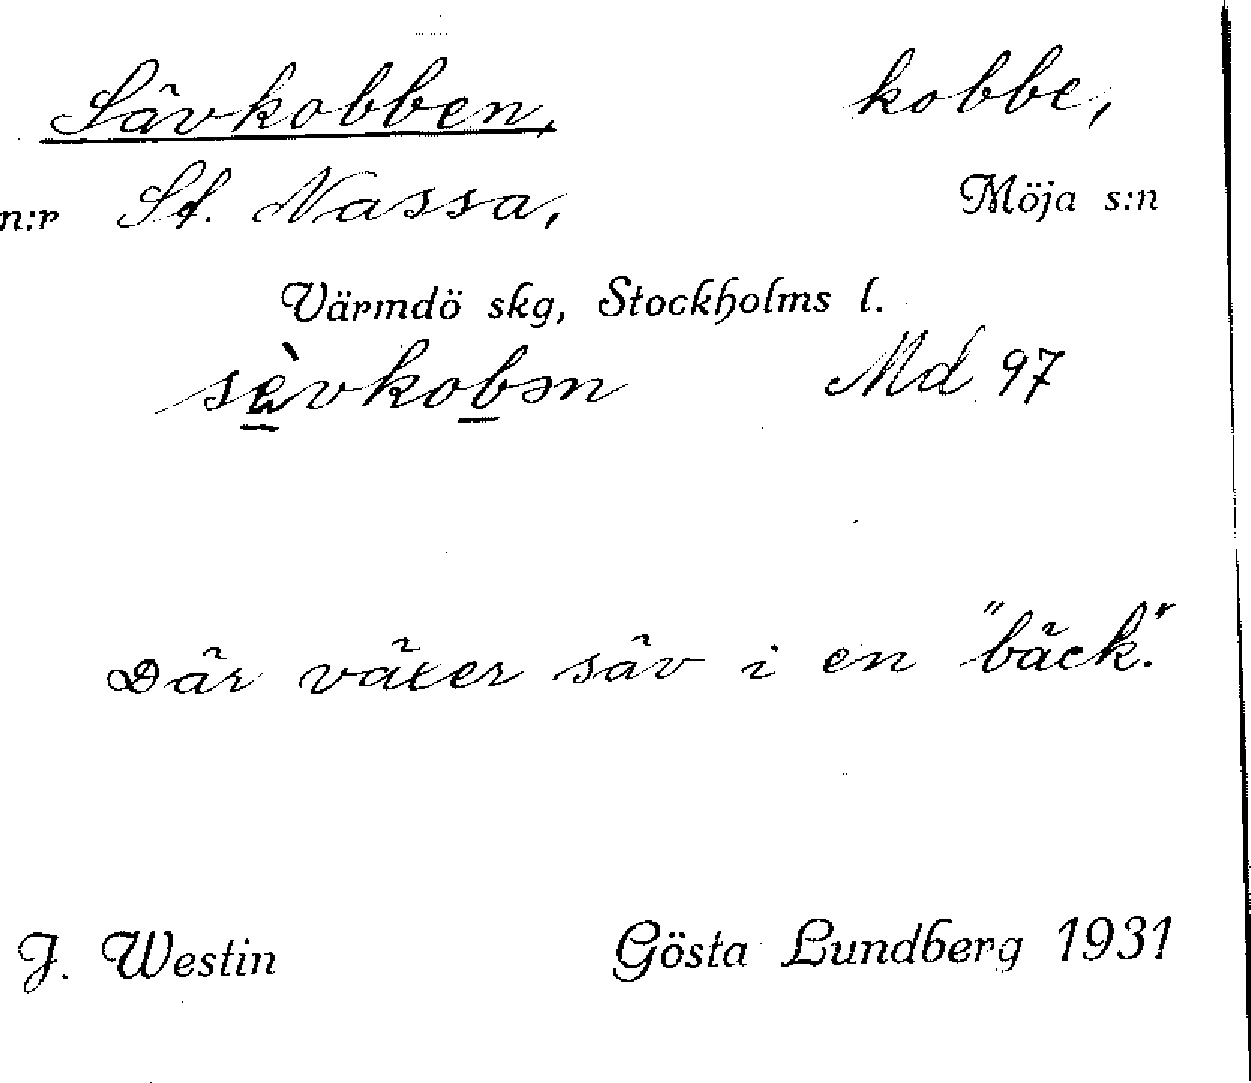 Sävkobben, kobbe,
n:r St. Nassa, Möja s:n
Värmdö skg, Stockholms l.
Md 97
Där växer säv i en "bäck".
J. Westin Gösta Lundberg 1931